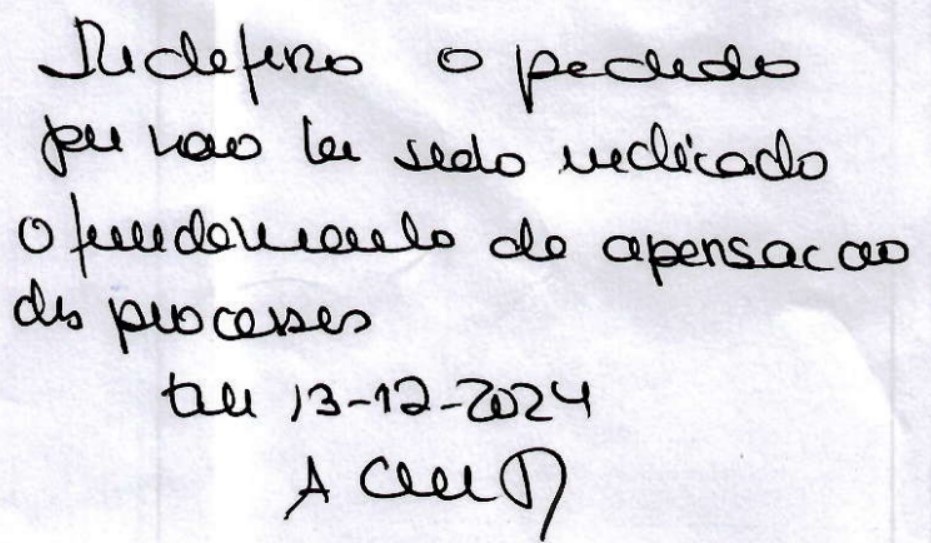 Indefiro o pedido
por nao ter sido indicado
o fundamento da apensacao
dos processos
Em 13-12-2024
A